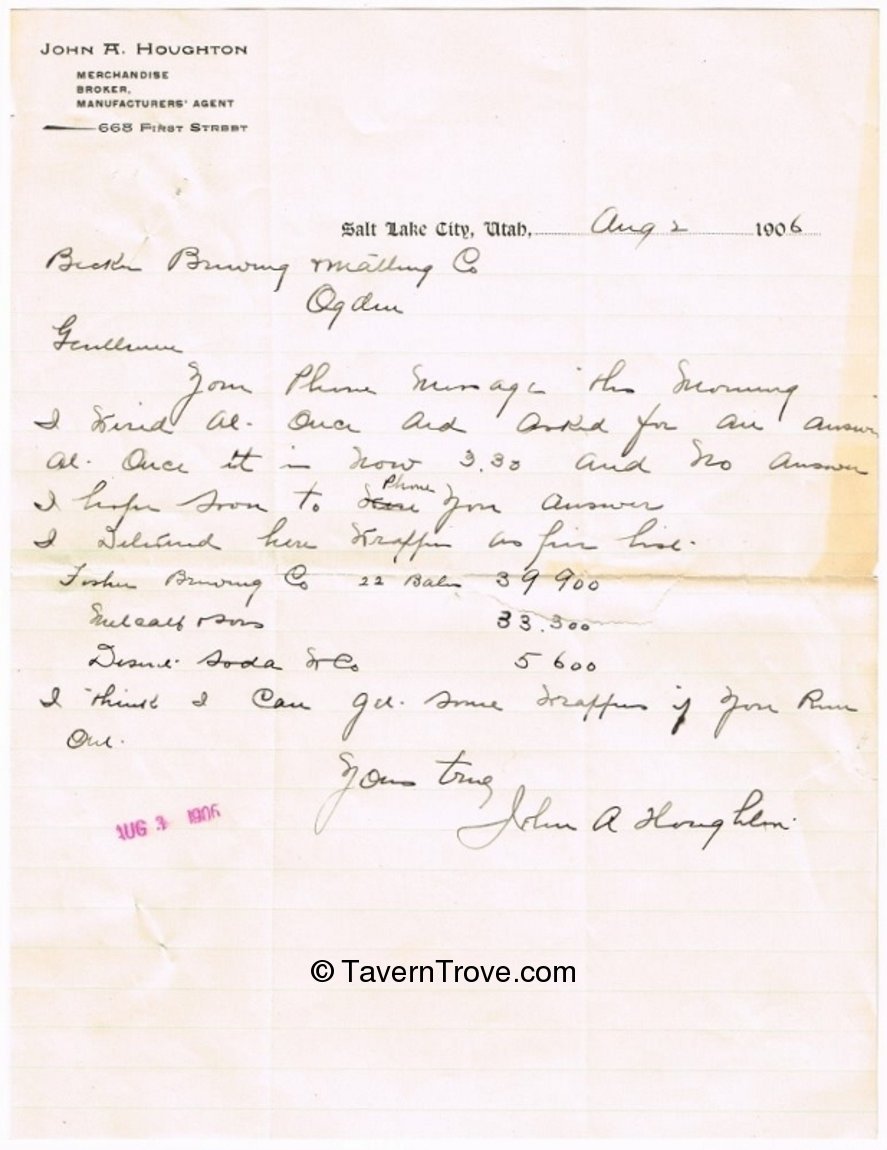 JOHN A. HOUGHTON
MERCHANDISE
BROKER,
MANUFACTURERS' AGENT
668 FIRST STREET
Salt Lake City, Utah, Aug 2 1906
Becker Brewing & Malting Co
Ogden
Gentlemen
Your Phone Message this Morning
I Wired At Once and asked for an answer
At Once it is Now 3.30 and No answer
I hope soon to Phone You answer
I Delivered here Wrappers as per list.
Fisher Brewing Co 22 Bales 39 900
Metcalf & Sons 33.300
Deseret Soda W Co 5 600
I think I Can get some Wrappers if You Run
Out.
Yours truly
John A Houghton
AUG 3 1906
© TavernTrove.com